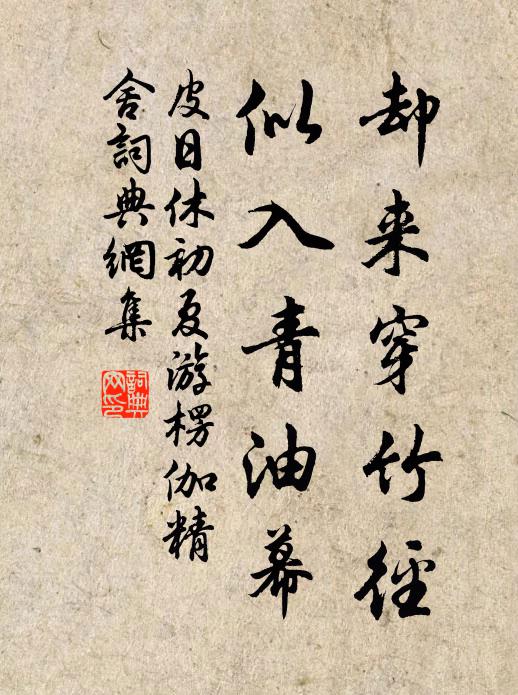 却来穿竹径
似入青油幕
皮日休初夏游楞伽精
舍詞典網集
詞典
网印